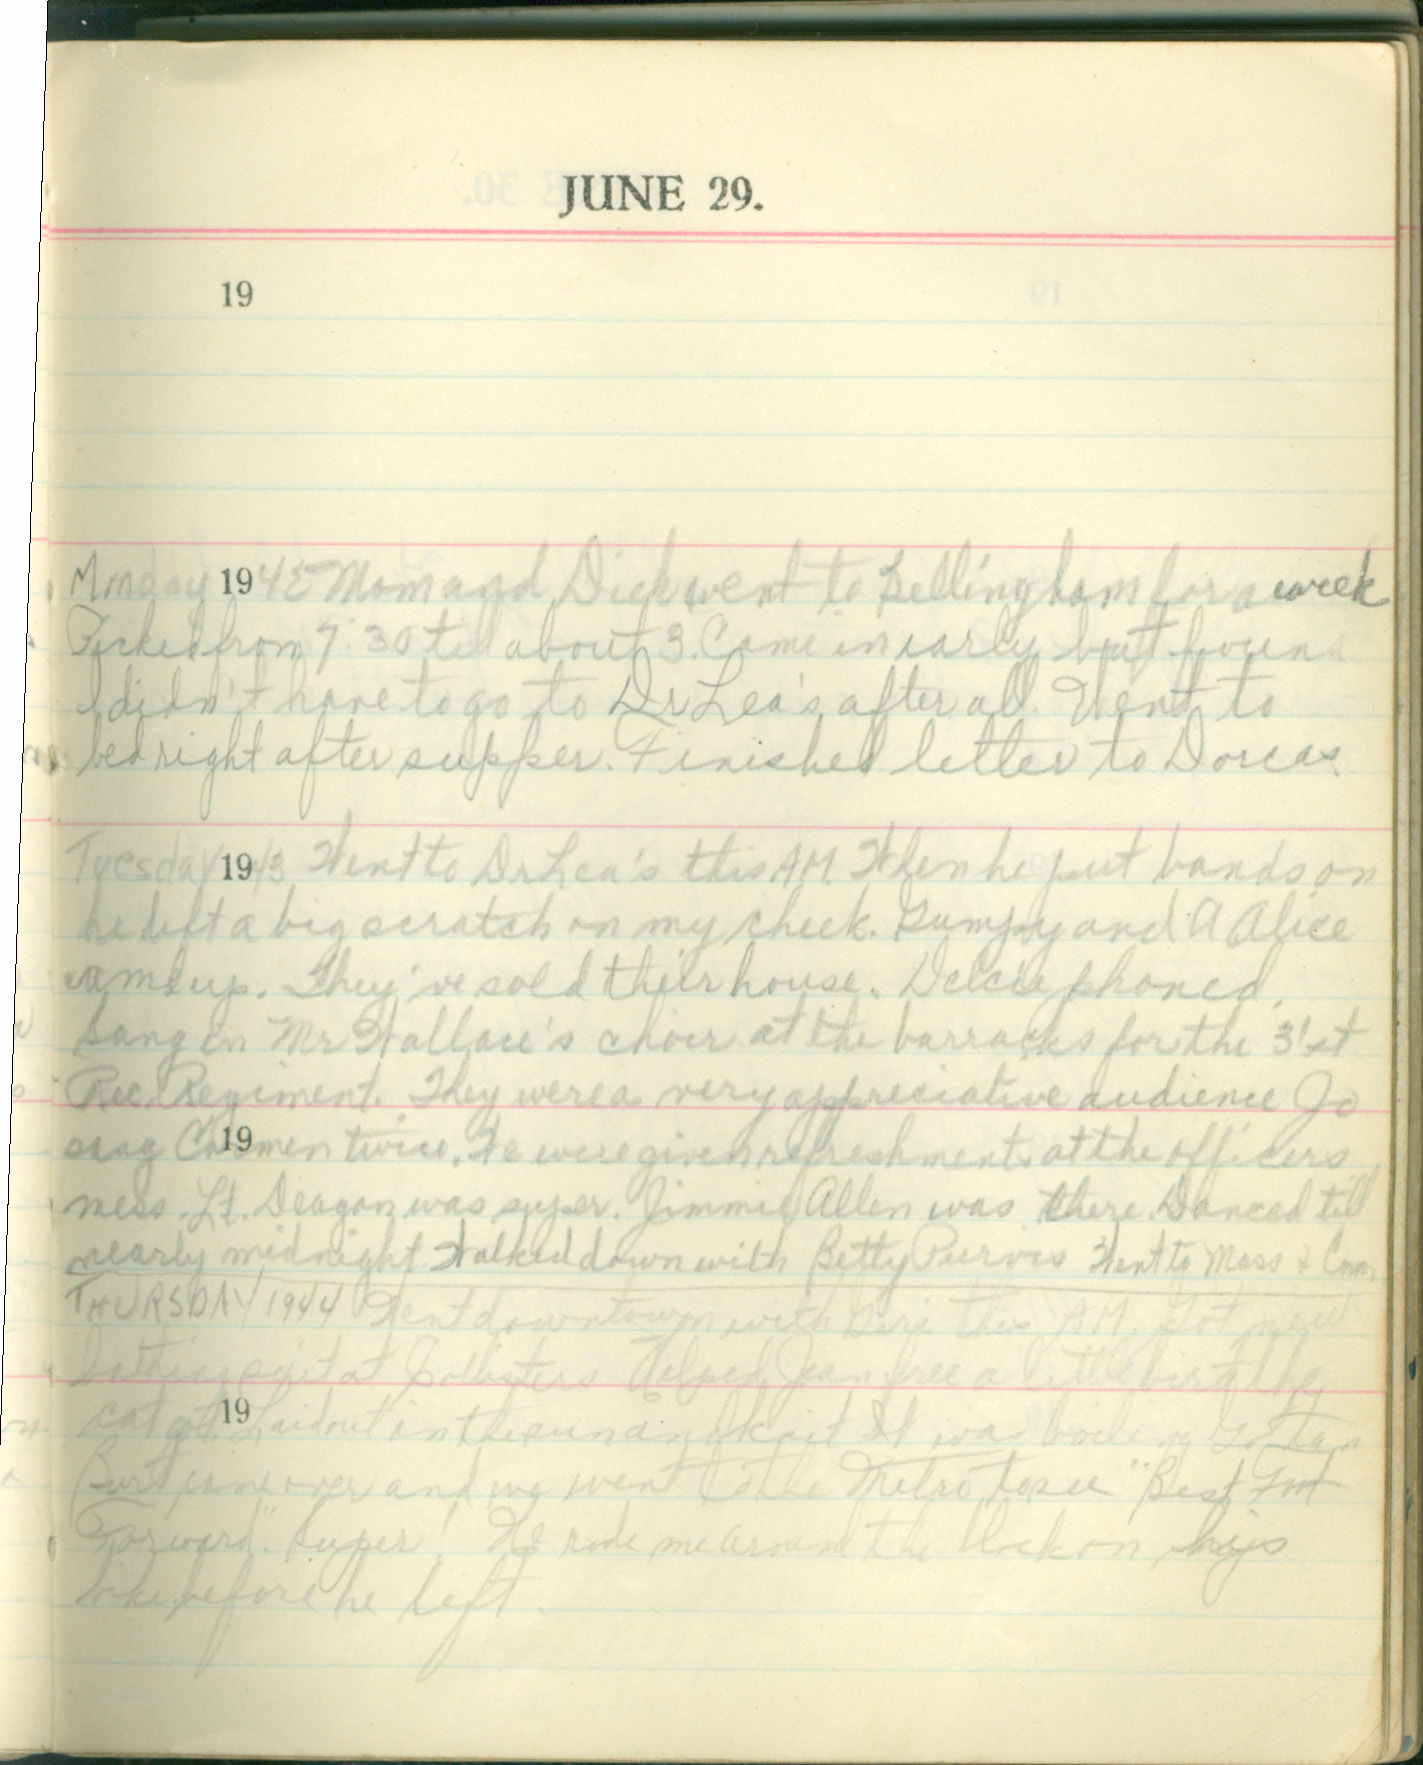 JUNE 29.
19
Monday 1942 Mom and Dick went to Bellingham for a week
Picked from 7:30 till about 3. Came in early but found
I didn't have to go to Dr Lea's after all. Went to
bed right after supper. Finished letter to Dorcas.
Tuesday 1943 Went to Dr Lea's this AM. When he put bands on
he left a big scratch on my cheek. Gumpy and A Alice
came up. They've sold their house. Delcie phoned.
Sang in Mr Wallace's choir at the barracks for the 31st
Rec. Regiment. They were a very appreciative audience Jo
19
sang Carmen twice. We were given refreshments at the officers
mess. Lt. Deagon was super. Jimmie Allen was there. Danced till
nearly midnight Walked down with Betty Purves Went to Mass & Comm
THURSDAY 1944 Went downtown with this AM. Got new
bathing suit at Helped Jean free a little bird the
19
cat got. Laid out in the sun It was boiling
Burt came over and we went to the Metro to see "Best Foot
Forward". Super! He rode me around the block on his
bike before he left.